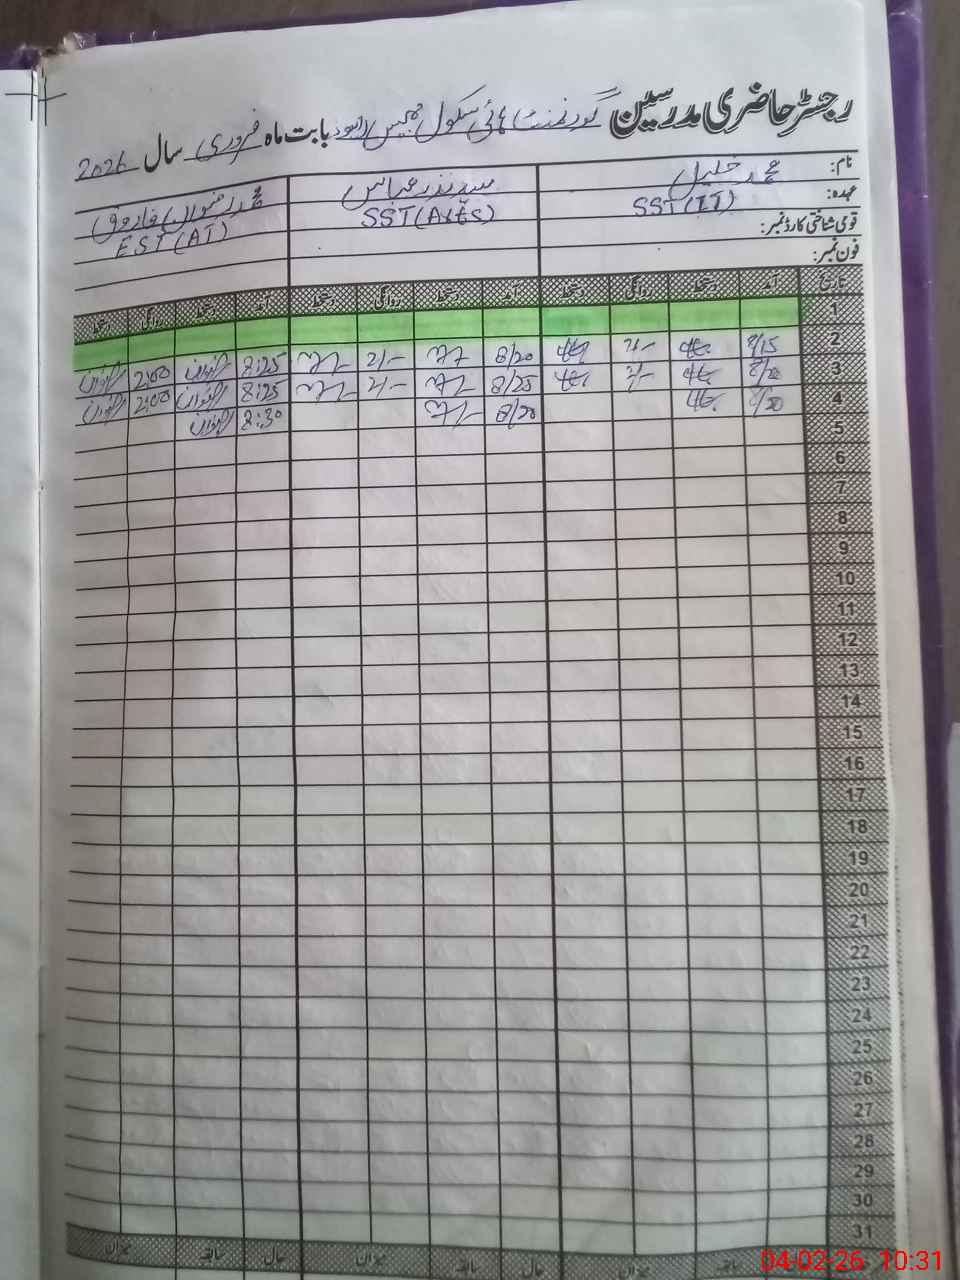 رجسٹر حاضری مدرسین گورنمنٹ ہائی سکول بابت ماہ فروری سال 2026
نام: محمد خلیل سید نذر عباس محمد رضوان فاروق
عہدہ: SST(IT) SST(Arts) EST(AT)
قومی شناختی کارڈ نمبر:
فون نمبر:
تاریخ آمد دستخط روانگی دستخط آمد دستخط روانگی دستخط آمد دستخط روانگی دستخط
1
2 8/15 2/- 8/20 2/- 8:25 2:00
3 8/20 2/- 8/25 2/- 8:25 2:00
4 8/20 8/20 8:30
5
6
7
8
9
10
11
12
13
14
15
16
17
18
19
20
21
22
23
24
25
26
27
28
29
30
31
میزان حال سابقہ میزان حال سابقہ میزان
04-02-26 10:31